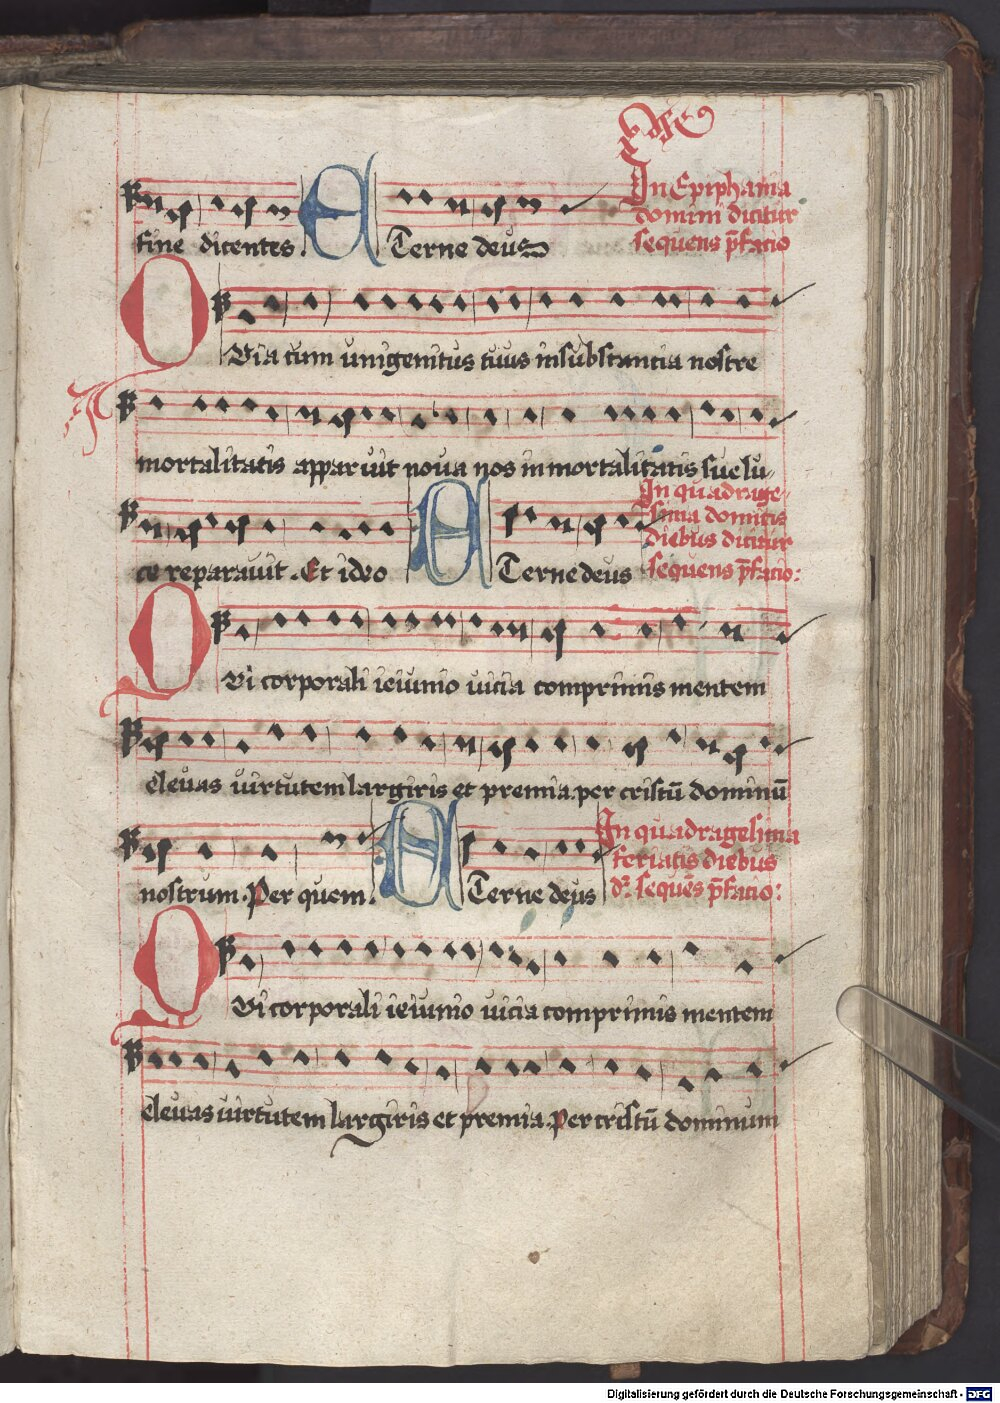 In Epiphania
domini dicitur
sequens p̄facio
fine dicentes. ETerne deus
QVia cum unigenitus tuus insubstantia nostre
mortalitatis apparuit noua nos inmortalitatis sue lu
In quadrage
sima domicis
diebus dicitur
sequens p̄facio:
ce reparauit. Et ideo ETerne deus
QVi corporali ieiunio uicia comprimis mentem
eleuas uirtutem largiris et premia. per cristū dominū
In quadragesima
feriatis diebus
dr̄ sequēs p̄facio:
nostrum. Per quem. ETerne deus
QVi corporali ieiunio uicia comprimis mentem
eleuas uirtutem largiris et premia. Per cristū dominum
Digitalisierung gefördert durch die Deutsche Forschungsgemeinschaft - DFG